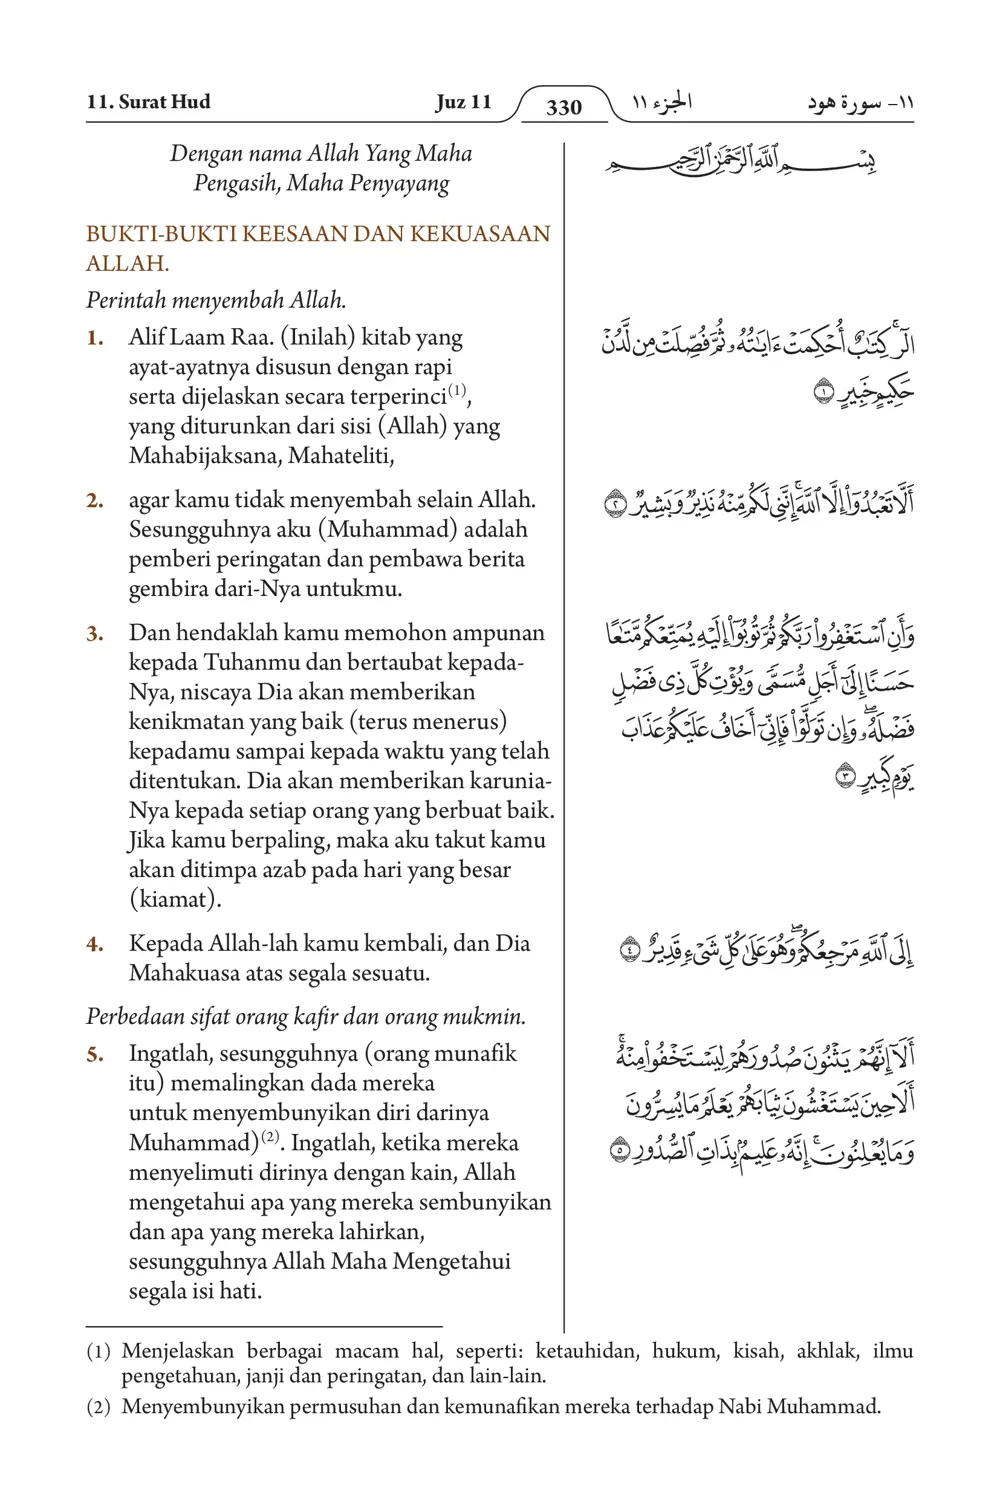 11. Surat Hud Juz 11 330 الجزء ١١ ١١- سورة هود
Dengan nama Allah Yang Maha
Pengasih, Maha Penyayang
BUKTI-BUKTI KEESAAN DAN KEKUASAAN
ALLAH.
Perintah menyembah Allah.
1. Alif Laam Raa. (Inilah) kitab yang
ayat-ayatnya disusun dengan rapi
serta dijelaskan secara terperinci(1),
yang diturunkan dari sisi (Allah) yang
Mahabijaksana, Mahateliti,
2. agar kamu tidak menyembah selain Allah.
Sesungguhnya aku (Muhammad) adalah
pemberi peringatan dan pembawa berita
gembira dari-Nya untukmu.
3. Dan hendaklah kamu memohon ampunan
kepada Tuhanmu dan bertaubat kepada-
Nya, niscaya Dia akan memberikan
kenikmatan yang baik (terus menerus)
kepadamu sampai kepada waktu yang telah
ditentukan. Dia akan memberikan karunia-
Nya kepada setiap orang yang berbuat baik.
Jika kamu berpaling, maka aku takut kamu
akan ditimpa azab pada hari yang besar
(kiamat).
4. Kepada Allah-lah kamu kembali, dan Dia
Mahakuasa atas segala sesuatu.
Perbedaan sifat orang kafir dan orang mukmin.
5. Ingatlah, sesungguhnya (orang munafik
itu) memalingkan dada mereka
untuk menyembunyikan diri darinya
Muhammad)(2). Ingatlah, ketika mereka
menyelimuti dirinya dengan kain, Allah
mengetahui apa yang mereka sembunyikan
dan apa yang mereka lahirkan,
sesungguhnya Allah Maha Mengetahui
segala isi hati.
بِسْمِ ٱللَّهِ ٱلرَّحْمَٰنِ ٱلرَّحِيمِ
الٓرۚ كِتَٰبٌ أُحْكِمَتْ ءَايَٰتُهُۥ ثُمَّ فُصِّلَتْ مِن لَّدُنْ
حَكِيمٍ خَبِيرٍ ١
أَلَّا تَعْبُدُوٓا۟ إِلَّا ٱللَّهَۚ إِنَّنِى لَكُم مِّنْهُ نَذِيرٌ وَبَشِيرٌ ٢
وَأَنِ ٱسْتَغْفِرُوا۟ رَبَّكُمْ ثُمَّ تُوبُوٓا۟ إِلَيْهِ يُمَتِّعْكُم مَّتَٰعًا
حَسَنًا إِلَىٰٓ أَجَلٍ مُّسَمًّى وَيُؤْتِ كُلَّ ذِى فَضْلٍ
فَضْلَهُۥۖ وَإِن تَوَلَّوْا۟ فَإِنِّىٓ أَخَافُ عَلَيْكُمْ عَذَابَ
يَوْمٍ كَبِيرٍ ٣
إِلَى ٱللَّهِ مَرْجِعُكُمْۖ وَهُوَ عَلَىٰ كُلِّ شَىْءٍ قَدِيرٌ ٤
أَلَآ إِنَّهُمْ يَثْنُونَ صُدُورَهُمْ لِيَسْتَخْفُوا۟ مِنْهُۚ
أَلَا حِينَ يَسْتَغْشُونَ ثِيَابَهُمْ يَعْلَمُ مَا يُسِرُّونَ
وَمَا يُعْلِنُونَۚ إِنَّهُۥ عَلِيمٌۢ بِذَاتِ ٱلصُّدُورِ ٥
(1) Menjelaskan berbagai macam hal, seperti: ketauhidan, hukum, kisah, akhlak, ilmu
pengetahuan, janji dan peringatan, dan lain-lain.
(2) Menyembunyikan permusuhan dan kemunafikan mereka terhadap Nabi Muhammad.